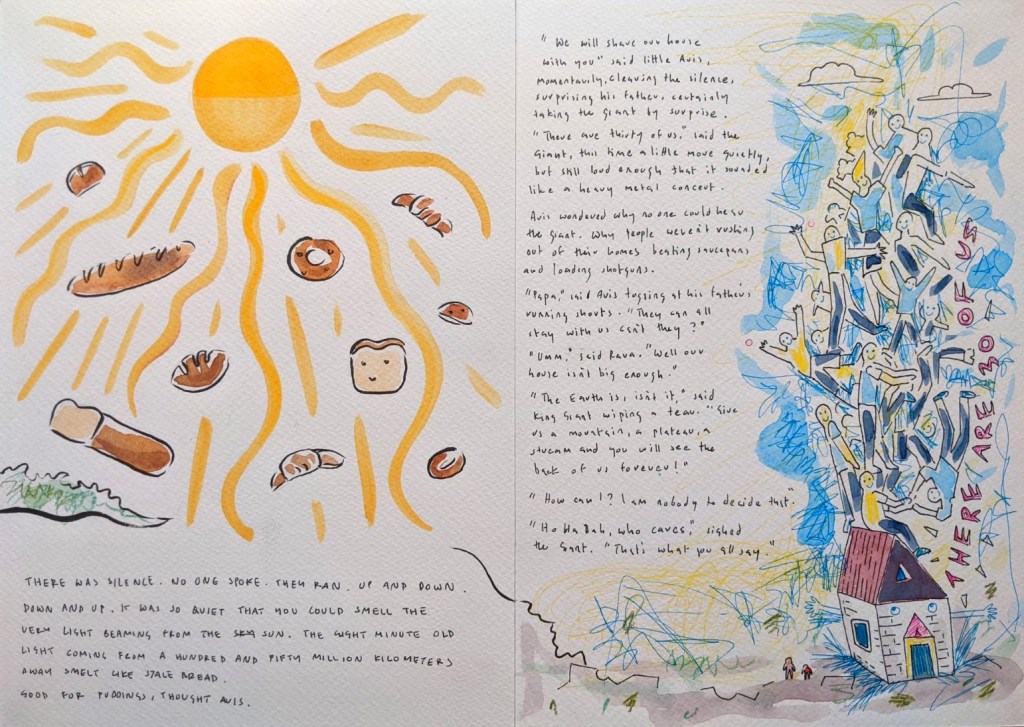 THERE WAS SILENCE. NO ONE SPOKE. THEY RAN. UP AND DOWN.
DOWN AND UP. IT WAS SO QUIET THAT YOU COULD SMELL THE
VERY LIGHT BEAMING FROM THE SUN. THE EIGHT MINUTE OLD
LIGHT COMING FROM A HUNDRED AND FIFTY MILLION KILOMETERS
AWAY SMELT LIKE STALE BREAD.
GOOD FOR PUDDINGS, THOUGHT AVIS.
"We will share our house
with you" said little Avis,
momentarily, cleaving the silence,
surprising his father, certainly
taking the giant by surprise.
"There are thirty of us," said the
Giant, this time a little more quietly,
but still loud enough that it sounded
like a heavy metal concert.
Avis wondered why no one could hear
the giant. Why people weren't rushing
out of their homes beating saucepans
and loading shotguns.
"Papa," said Avis tugging at his father's
running shorts. "They can all
stay with us can't they?"
"Umm," said Rava. "Well our
house isn't big enough."
"The Earth is, isn't it," said
King Giant wiping a tear. "Give
us a mountain, a plateau, a
stream and you will see the
back of us forever!"
"How can I? I am nobody to decide that".
"Ho Ha Bah, who cares," sighed
the Giant. "That's what you all say."
THERE ARE 30 OF US